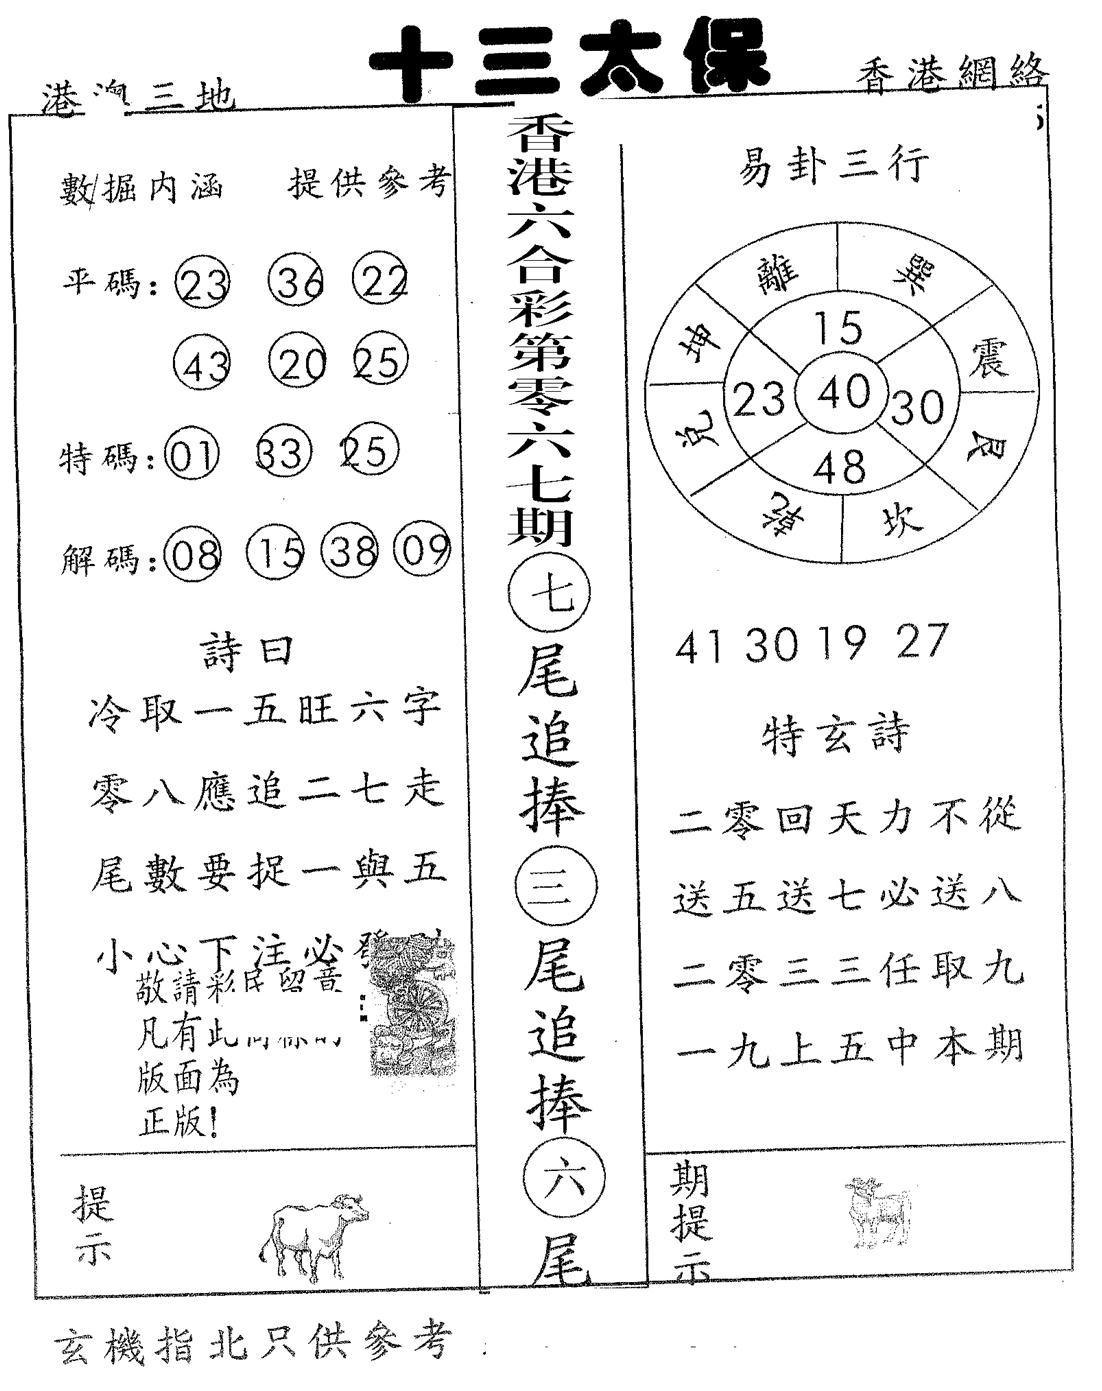 十三太保
港 三地
香港網絡
數掘内涵 提供參考
平碼: 23 36 22
43 20 25
特碼: 01 33 25
解碼: 08 15 38 09
詩曰
冷取一五旺六字
零八應追二七走
尾數要捉一與五
小心下注必發
敬請彩民留意
凡有此
版面為
正版!
提示
香港六合彩第零六七期
七尾追捧三尾追捧六尾
易卦三行
離 巽
坤 15 震
23 40 30
兌 48 艮
乾 坎
41 30 19 27
特玄詩
二零回天力不從
送五送七必送八
二零三三任取九
一九上五中本期
期提示
玄機指北只供參考